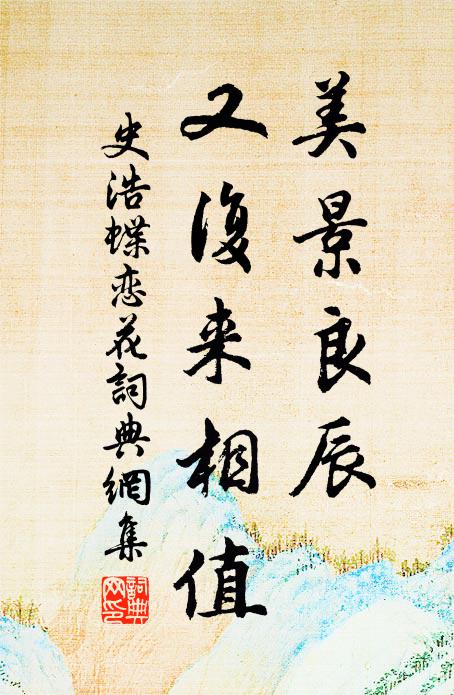 美景良辰
又復来相值
史浩蝶恋花詞典網集
詞典網印